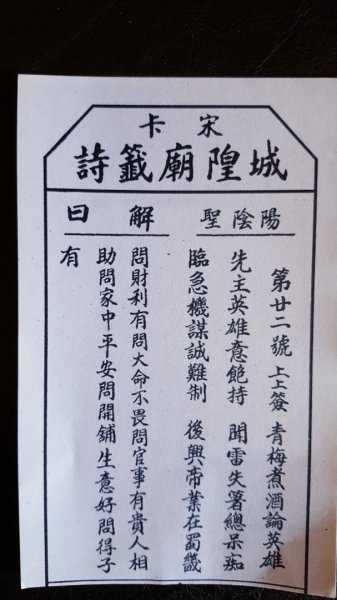 宋卡
城隍廟籤詩
陽陰聖
解曰
第廿二號 上上簽 青梅煮酒論英雄
先主英雄意飽持 聞雷失箸總呆痴
臨急機謀誠難制 後興帝業在蜀畿
問財利有問大命不畏問官事有貴人相
助問家中平安問開鋪生意好問得子
有